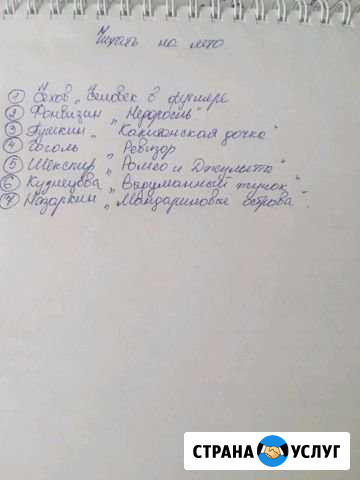 Читать на лето
1 Чехов „Человек в футляре
2 Фонвизин „Недоросль"
3 Пушкин „Капитанская дочка"
4 Гоголь „Ревизор
5 Шекспир „Ромео и Джульетта"
6 Кузнецова „Выдуманный жучок"
7 Назаркин „Мандариновые острова".
СТРАНА УСЛУГ